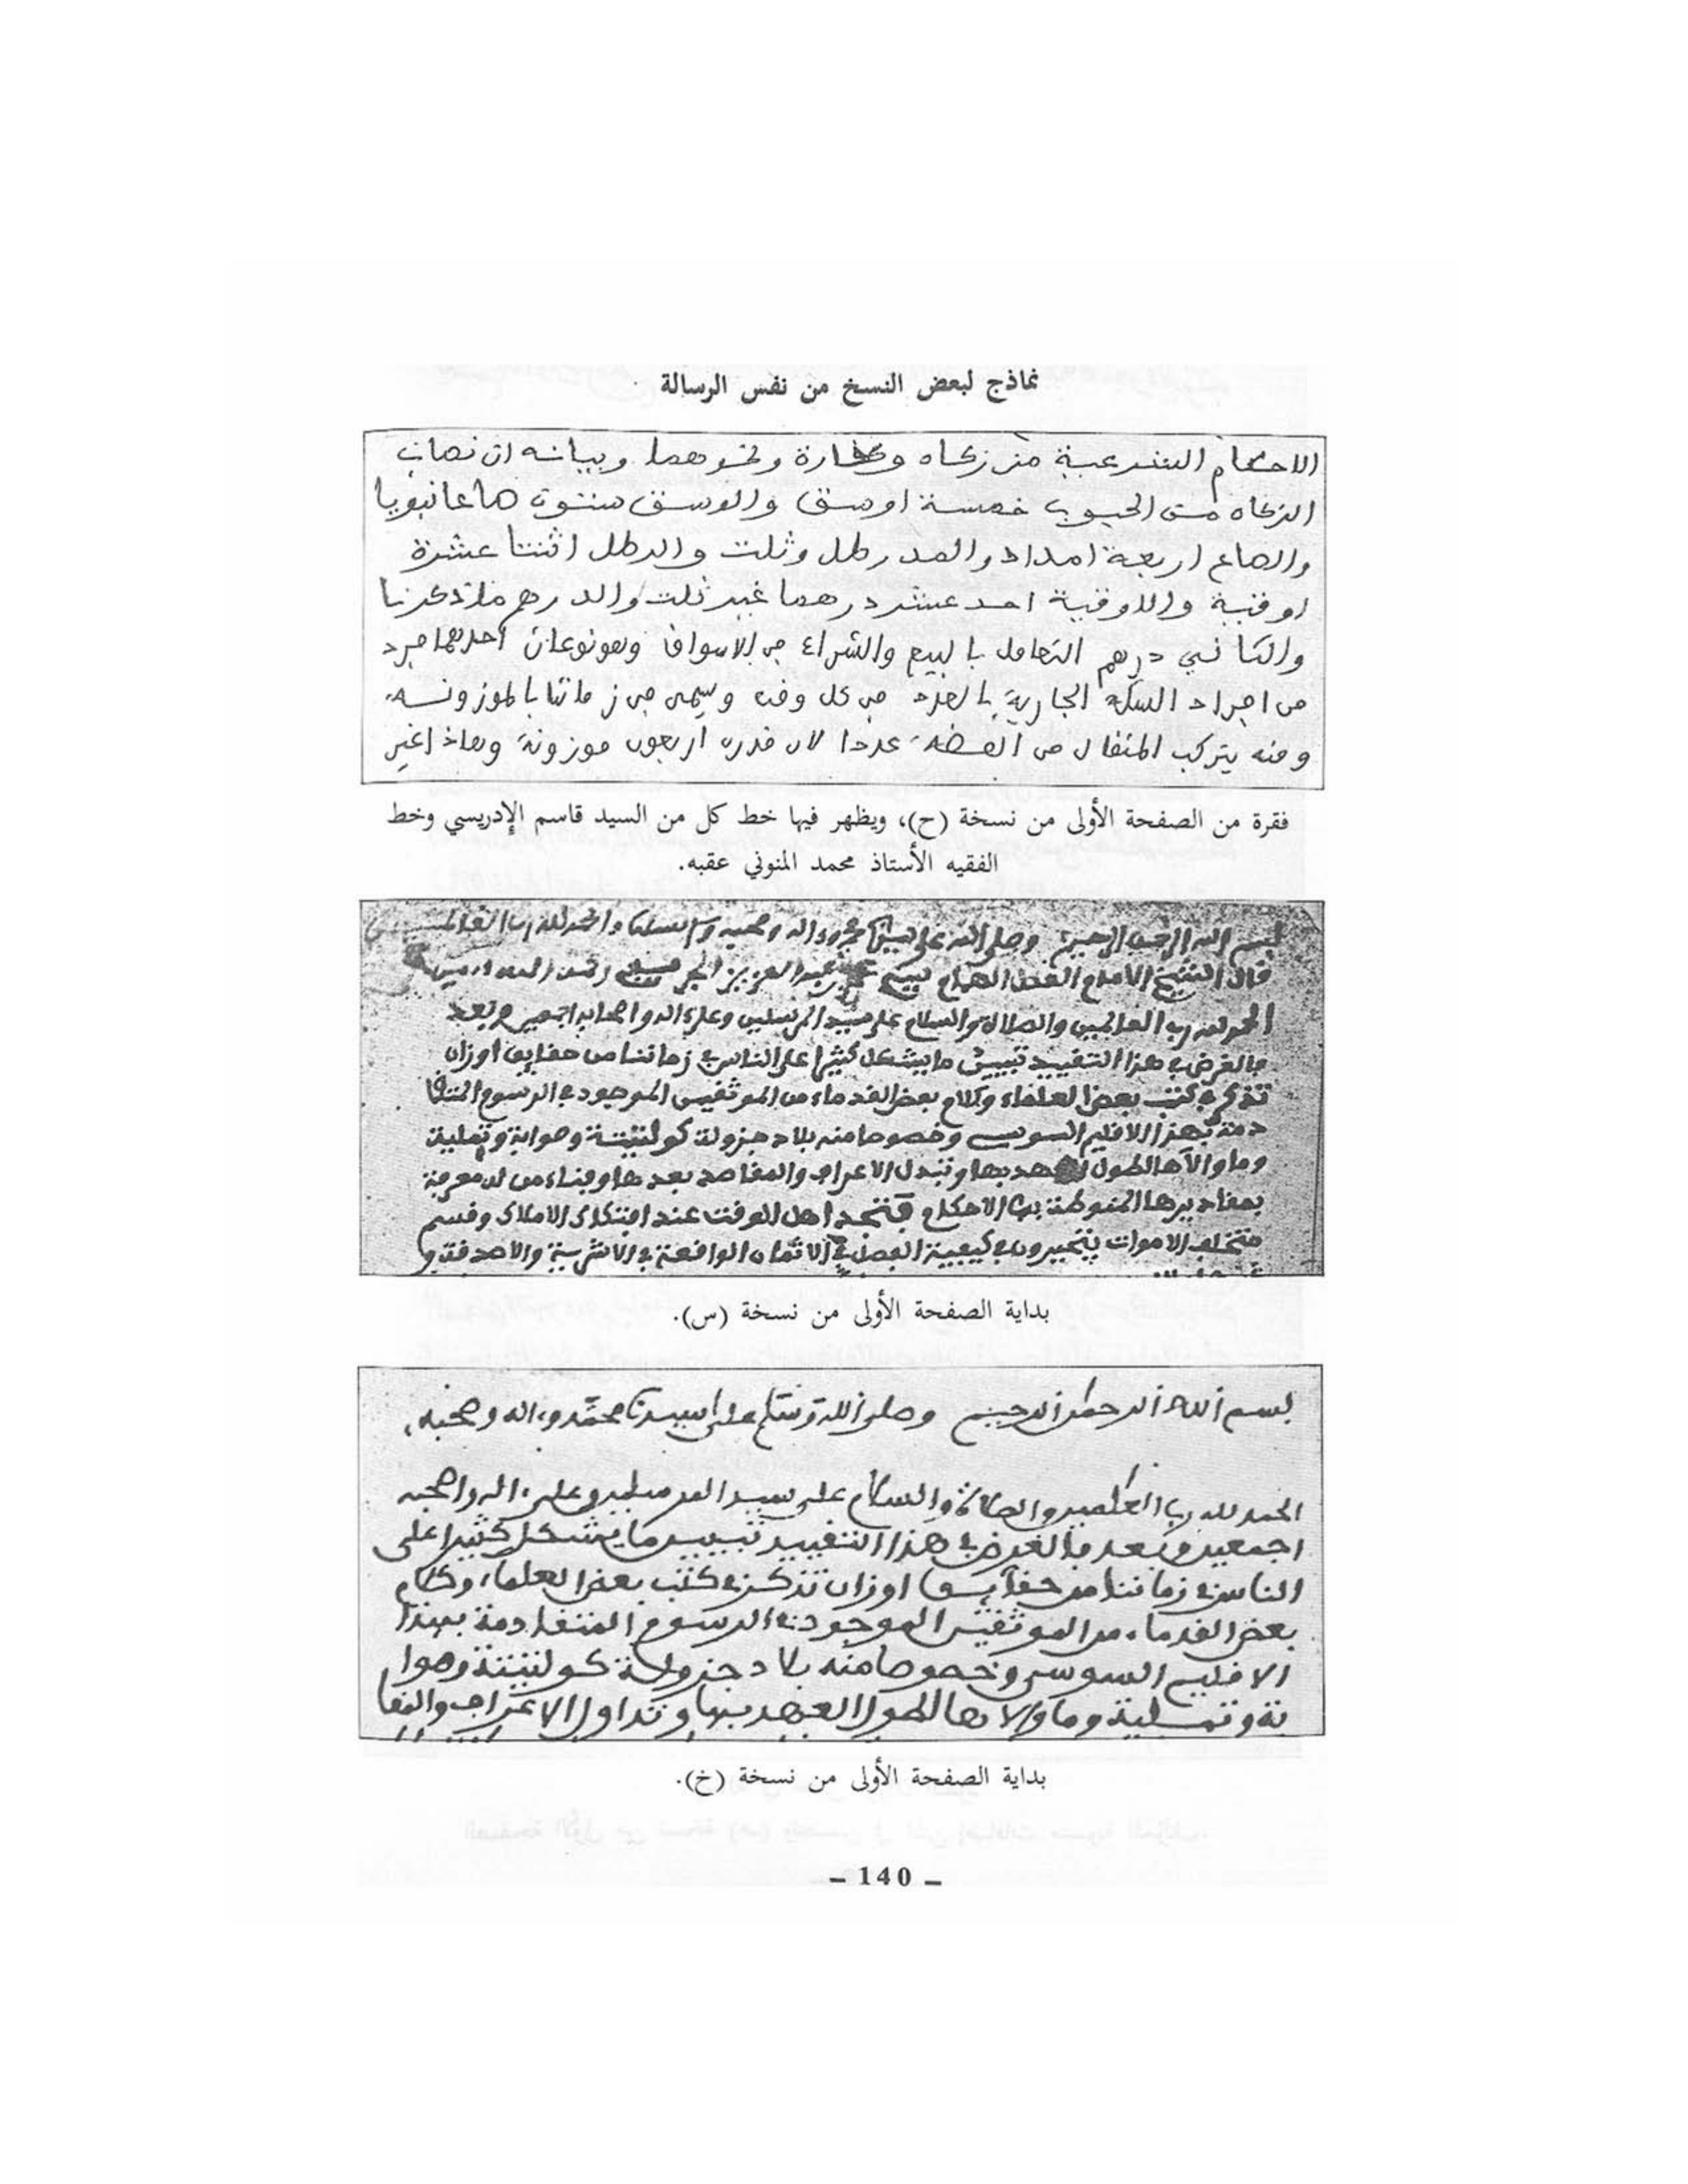 نماذج لبعض النسخ من نفس الرسالة
الاحكام الشرعية من زكاه وكفارة ونحوهما وبيانه ان نصاب
الزكاه من الحبوب خمسة اوسق والوسق ستون صاعا نبويا
والصاع اربعة امداد والمد رطل وثلث والرطل اثنتا عشرة
اوقية والاوقية احد عشر درهما غير ثلث والدرهم ما ذكرنا
والثاني درهم التعامل بالبيع والشراء في الاسواق وهو نوعان احدهما فرد
من افراد السكة الجارية بالعدد في كل وقت ويسمى في زماننا بالموزونة
ومنه يتركب المثقال من الفضة عددا لان قدره اربعون موزونة وهاذا غير
فقرة من الصفحة الأولى من نسخة (ح)، ويظهر فيها خط كل من السيد قاسم الإدريسي وخط
الفقيه الأستاذ محمد المنوني عقبه.
بسم الله الرحمن الرحيم وصلى الله على محمد وءاله وصحبه والحمد لله رب العالمين
قال الشيخ الامام عبد العزيز
الحمد لله رب العالمين والصلاة والسلام على سيد المرسلين وعلى ءاله واصحابه اجمعين وبعد
فالغرض في هذا التقييد تبيين ما يشكل كثيرا على الناس في زماننا من حقايق اوزان
تذكر في كتب بعض العلماء وكلام بعض القدماء من الموثقين الموجود في الرسوم المتقا
دمة بهذا الاقليم السوسي وخصوصا منه بلاد جزولة كولتيتة وصوابة وتملية
وما والاها لطول العهد بها وتبدل الاعراف والمقاصد بعدها وفناء من له معرفة
بمقاديرها المنوطة بها الاحكام فتجد اهل الوقت عند افتكاك الاملاك وقسم
متخلف الاموات يتحيرون في كيفية الفصل في الاثمان الواقعة في الاشرية والاصدقة و
بداية الصفحة الأولى من نسخة (س).
بسم الله الرحمن الرحيم وصلى الله وسلم على سيدنا محمد وءاله وصحبه
الحمد لله رب العلمين والصلاة والسلام على سيد المرسلين وعلى ءاله واصحبه
اجمعين وبعد فالغرض في هذا التقييد تبيين ما يشكل كثيرا على
الناس في زماننا من حقايق اوزان تذكر في كتب بعض العلماء وكلام
بعض القدماء من الموثقين الموجود في الرسوم المتقادمة بهذا
الاقليم السوسي وخصوصا منه بلاد جزولة كولتيتة وصوا
بة وتملية وما والاها لطول العهد بها وتداول الاعراف والمقا
بداية الصفحة الأولى من نسخة (خ).
– 140 –